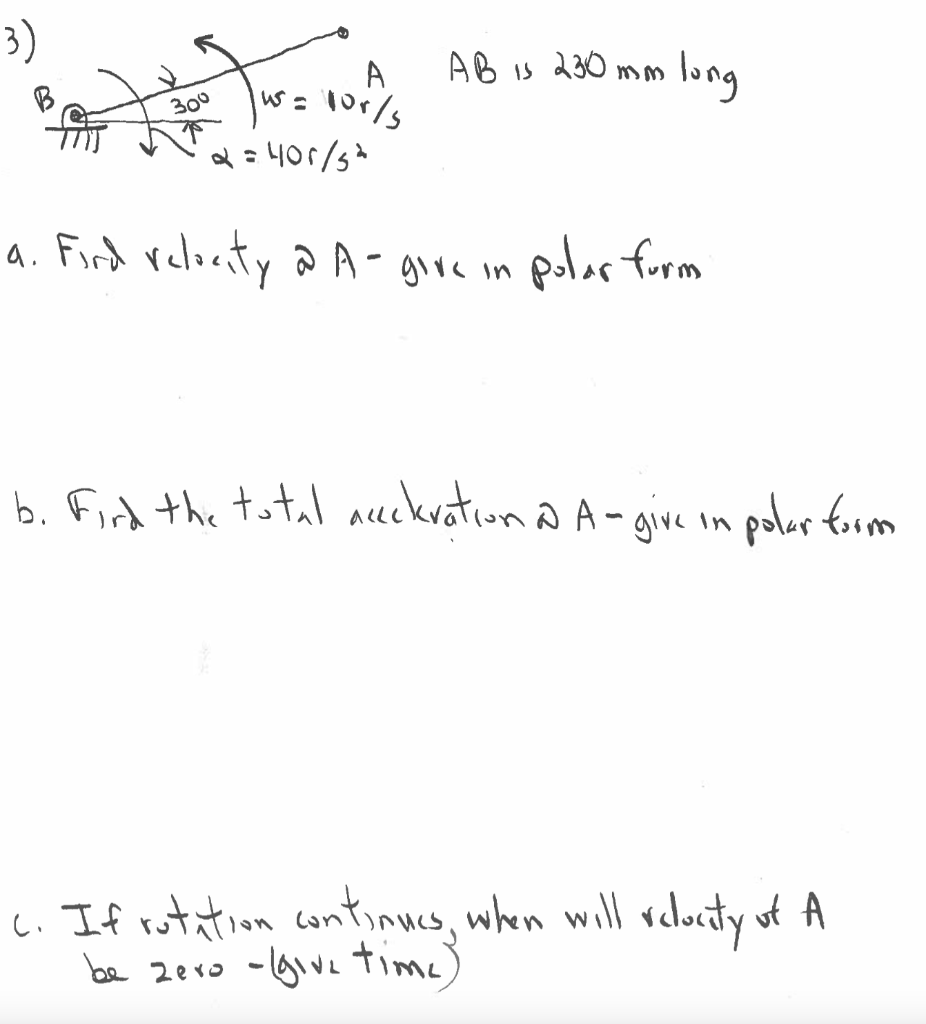 3)
B
30°
A
ω = 10r/s
α = 40r/s²
AB is 230 mm long
a. Find velocity @ A - give in polar form
b. Find the total acceleration @ A - give in polar form
c. If rotation continues, when will velocity of A
be zero - (give time)